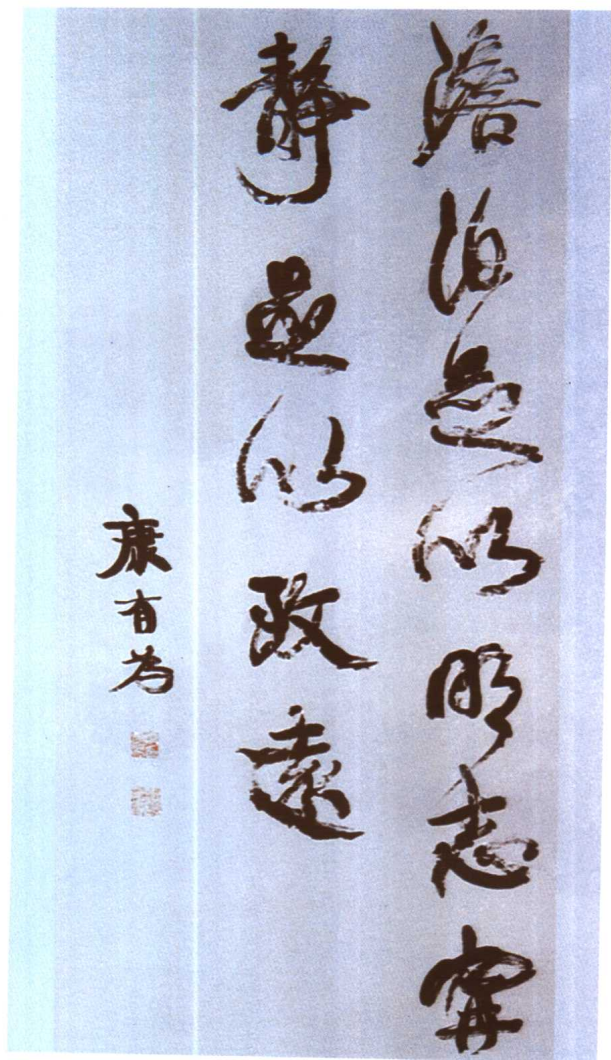 澹泊足以明志甯
靜足以致遠
康有為